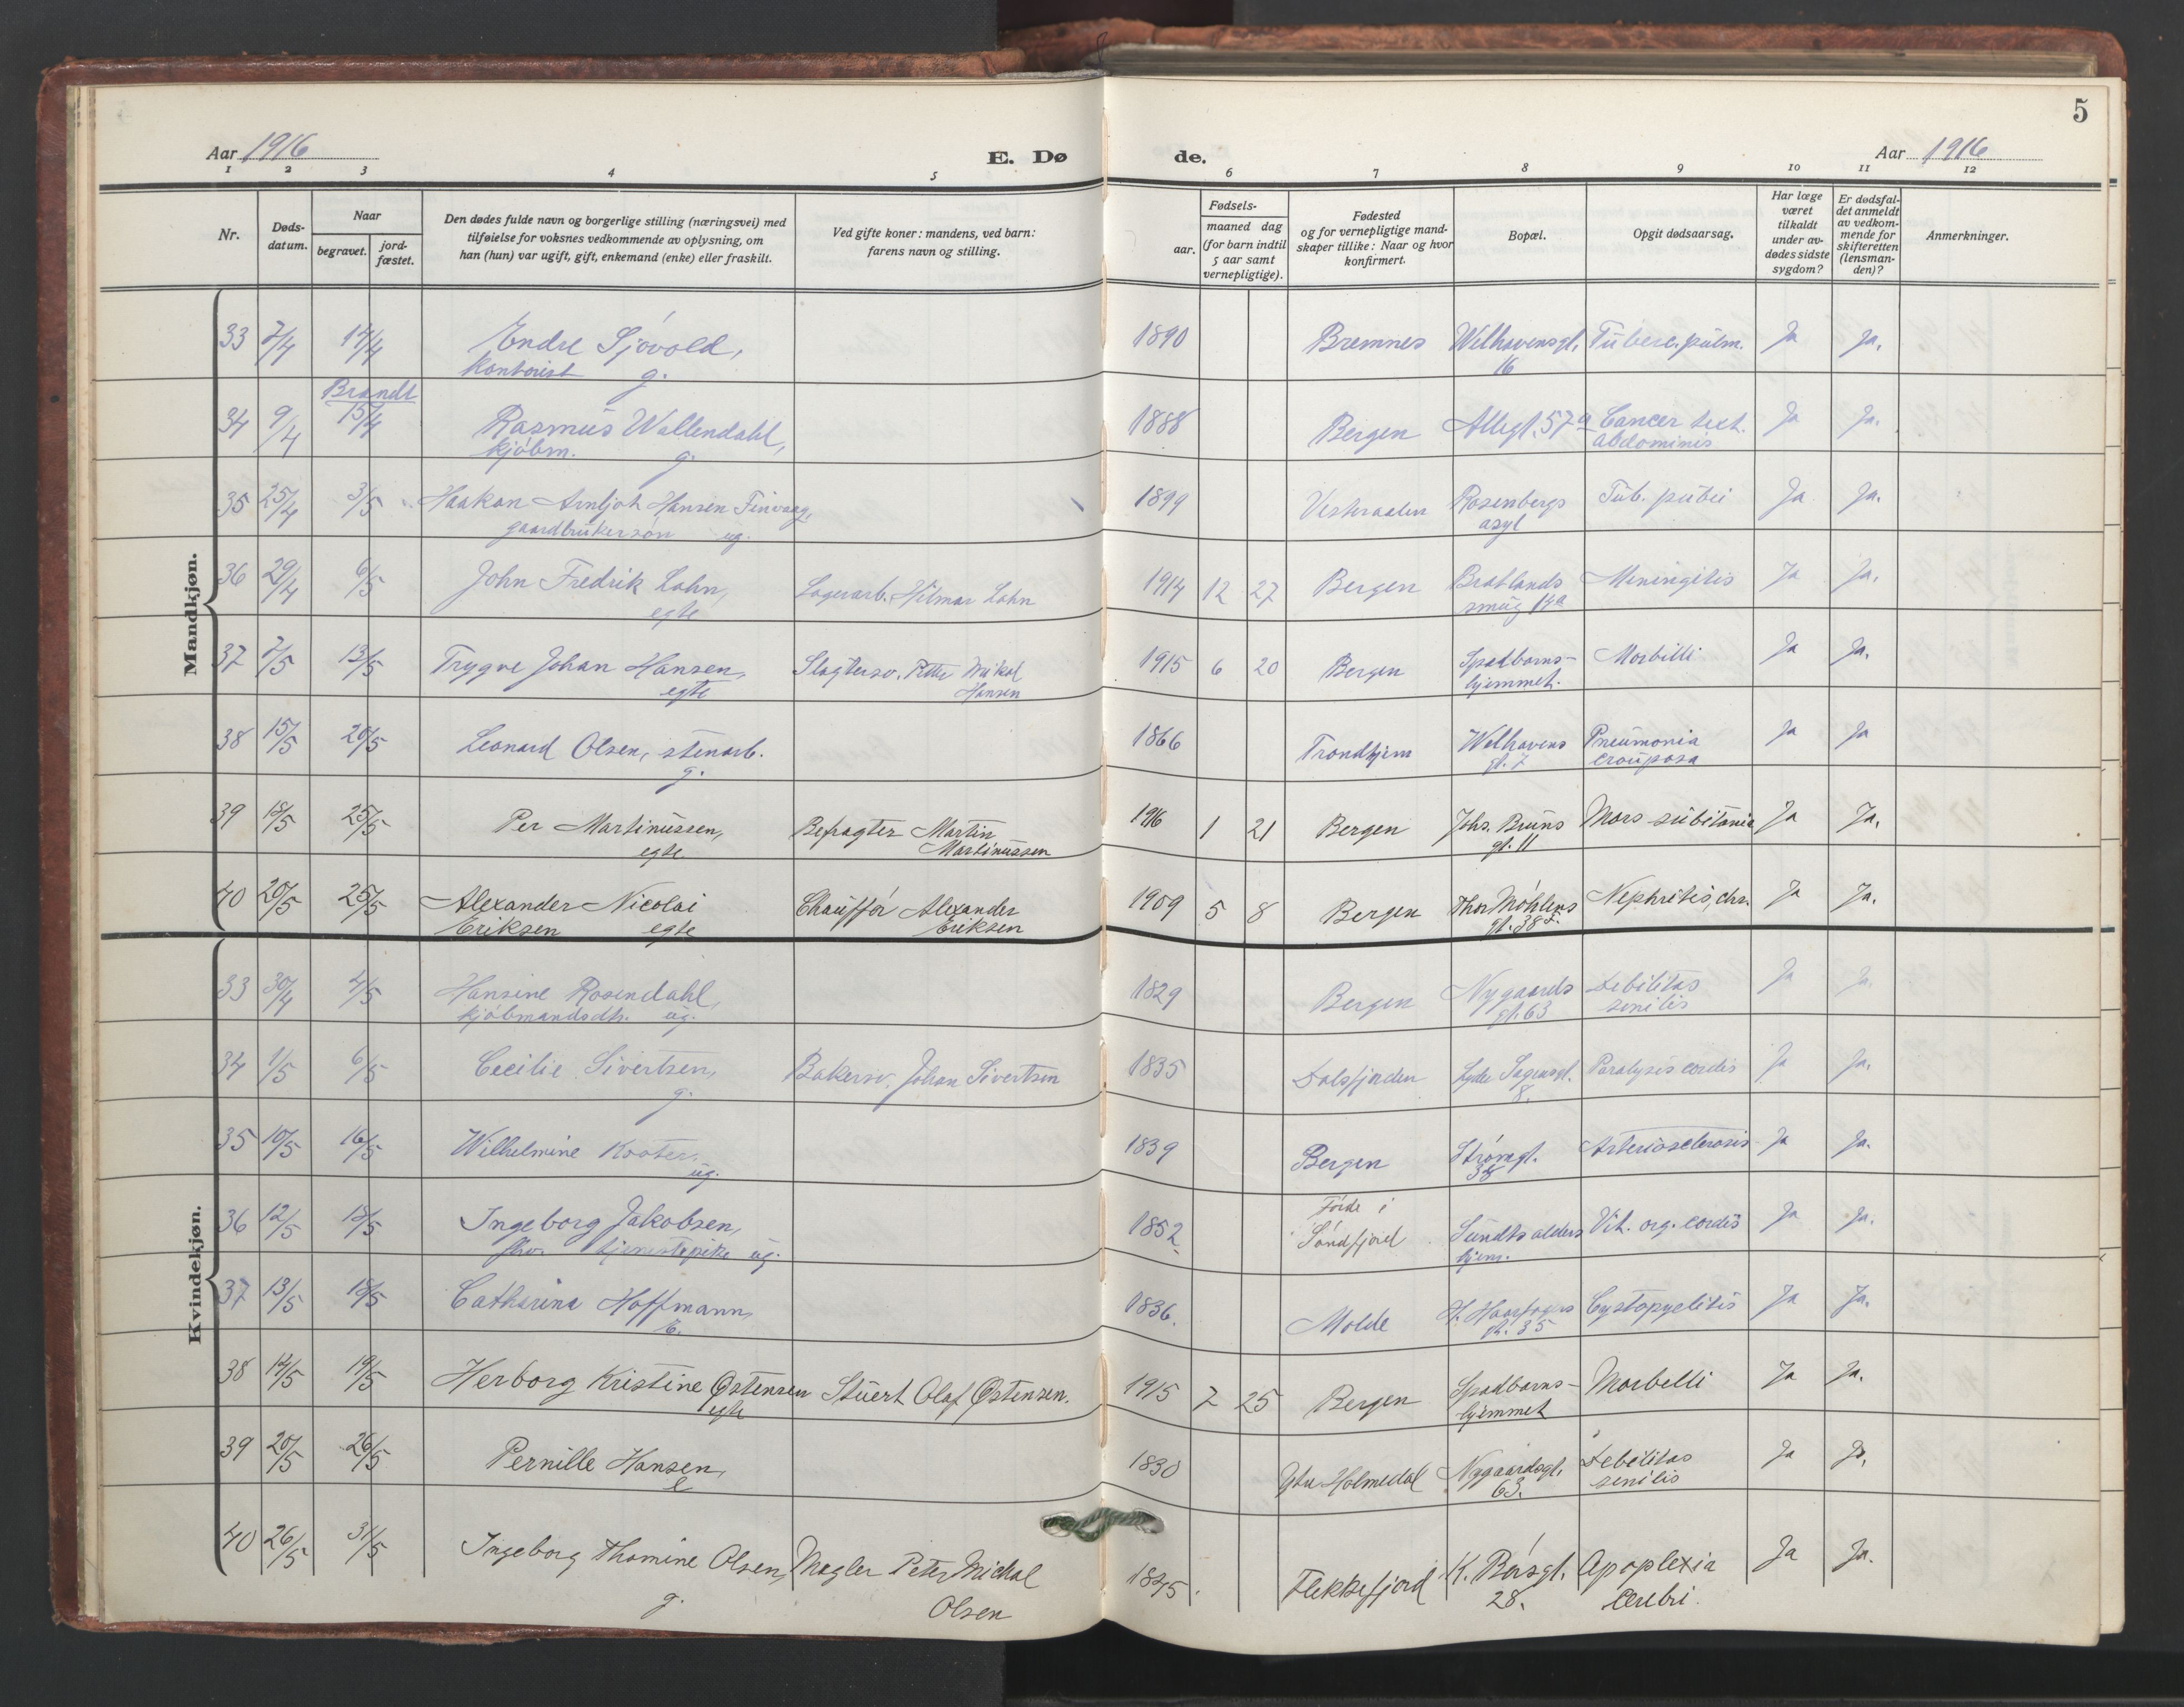 5
Aar 1916
E. Dø
de.
Aar 1916
1 2 3 4 5 6 7 8 9 10 11 12
Nr.
Døds-
datum.
Naar
begravet.
jord-
fæstet.
Den dødes fulde navn og borgerlige stilling (næringsvei) med
tilføielse for voksnes vedkommende av oplysning, om
han (hun) var ugift, gift, enkemand (enke) eller fraskilt.
Ved gifte koner: mandens, ved barn:
farens navn og stilling.
Fødsels-
aar.
maaned dag
(for barn indtil
5 aar samt
vernepligtige).
Fødested
og for vernepligtige mand-
skaper tillike: Naar og hvor
konfirmert.
Bopæl.
Opgit dødsaarsag.
Har læge
været
tilkaldt
under av-
dødes sidste
sygdom?
Er dødsfal-
det anmeldt
av vedkom-
mende for
skifteretten
(lensman-
den)?
Anmerkninger.
Mandkjøn.
33 7/4 14/4 Endre Sjóvold, 1890 Bremnes Welhavensgt. Tuberc. pulm. Ja Ja.
kontorist g. 16
Brandt
34 9/4 15/4 Rasmus Wallendahl, 1888 Bergen Allégt. 57a Cancer tect. Ja Ja.
kjóbm. g. abdominis
35 25/4 3/5 Haakon Arnljot Hansen Finvaag, 1899 Vesteraalen Rosenbergs Tub. pubis Ja Ja.
gaardbrukersón ug. asyl
36 29/4 6/5 John Fredrik Lohn, Lagerarb. Hilmar Lohn 1914 12 27 Bergen Bratlands Meningitis Ja Ja.
egte smug 14a
37 7/5 13/5 Trygve Johan Hansen, Slagtersv. Petter Mikal 1915 6 20 Bergen Spædbarns- Morbilli Ja Ja.
egte Hansen hjemmet.
38 15/5 20/5 Leonard Olsen, stenarb. 1866 Trondhjem Welhavens Pneumonia Ja Ja
g. gt. 7 crouposa
39 18/5 25/5 Per Martinussen, Befragter Martin 1916 1 21 Bergen Johs. Bruns Mors subitania Ja Ja.
egte Martinussen gt. 11
40 20/5 25/5 Alexander Nicolai Chauffór Alexander 1909 5 8 Bergen Thor Móhlens Nephritis, chr. Ja Ja.
Eriksen egte Eriksen gt. 38
Kvindekjøn.
33 30/4 4/5 Hansine Rosendahl, 1829 Bergen Nygaards Debilitas Ja Ja.
kjóbmandsdtr. ug. gt. 63 senilis
34 1/5 6/5 Cecilie Sivertsen, Bakersv. Johan Sivertsen 1835 Dalsfjorden Lyder Sagensgt. Paralysis cordis Ja Ja.
g. 8.
35 10/5 16/5 Wilhelmine Kooter, 1839 Bergen Strómgt. Arteriosclerosis Ja Ja.
ug. 38
36 12/5 18/5 Ingeborg Jakobsen, 1852 Fórde i Sóndfjord Sundts alders Vit. org. cordis Ja Ja.
fhv. tjenestepike ug. hjem.
37 13/5 18/5 Catharina Hoffmann, 1836. Molde H. Haarfagers Cystopyelitis Ja Ja.
E. gt. 35
38 14/5 19/5 Herborg Kristine Østensen Stuert Olaf Østensen. 1915 7 25 Bergen Spædbarns- Morbelli Ja Ja.
egte hjemmet
39 20/5 26/5 Pernille Hansen, 1830 Ytre Holmedal Nygaardsgt. Debilitas Ja Ja.
E 63. senilis
40 26/5 31/5 Ingeborg Thomine Olsen, Mægler Peter Michal 1845. Flekkefjord K. Børsgt. Apoplexia Ja Ja.
g. Olsen 28. cerebri.